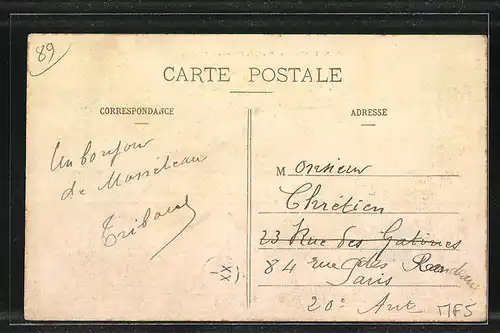 89
CARTE POSTALE
CORRESPONDANCE
ADRESSE
Un bonjour
de Monéteau
Tribout
Monsieur
Chrétien
23 Rue des Gatines
84 rue des Rondeaux
Paris
20e Art
XX
MF5